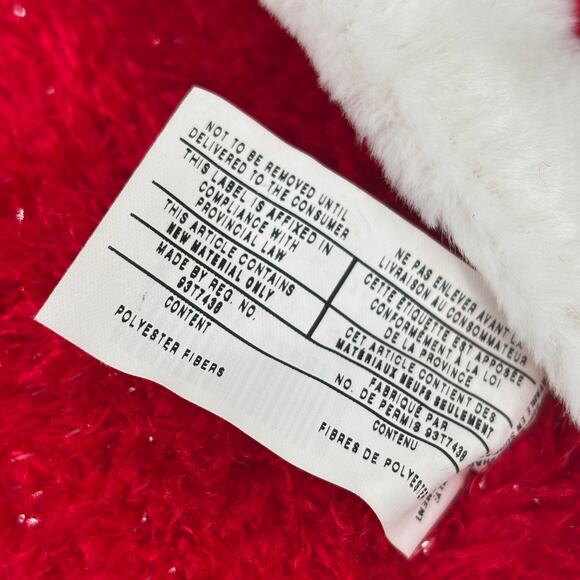 NOT TO BE REMOVED UNTIL
DELIVERED TO THE CONSUMER
THIS LABEL IS AFFIXED IN
COMPLIANCE WITH
PROVINCIAL LAW
THIS ARTICLE CONTAINS
NEW MATERIAL ONLY
MADE BY REG. NO.
93T7438
CONTENT
POLYESTER FIBERS
NE PAS ENLEVER AVANT LA
LIVRAISON AU CONSOMMATEUR
CETTE ÉTIQUETTE EST APPOSÉE
CONFORMÉMENT À LA LOI
DE LA PROVINCE
CET ARTICLE CONTIENT DES
MATÉRIAUX NEUFS SEULEMENT
FABRIQUÉ PAR
NO. DE PERMIS 93T7438
CONTENU
FIBRES DE POLYESTER